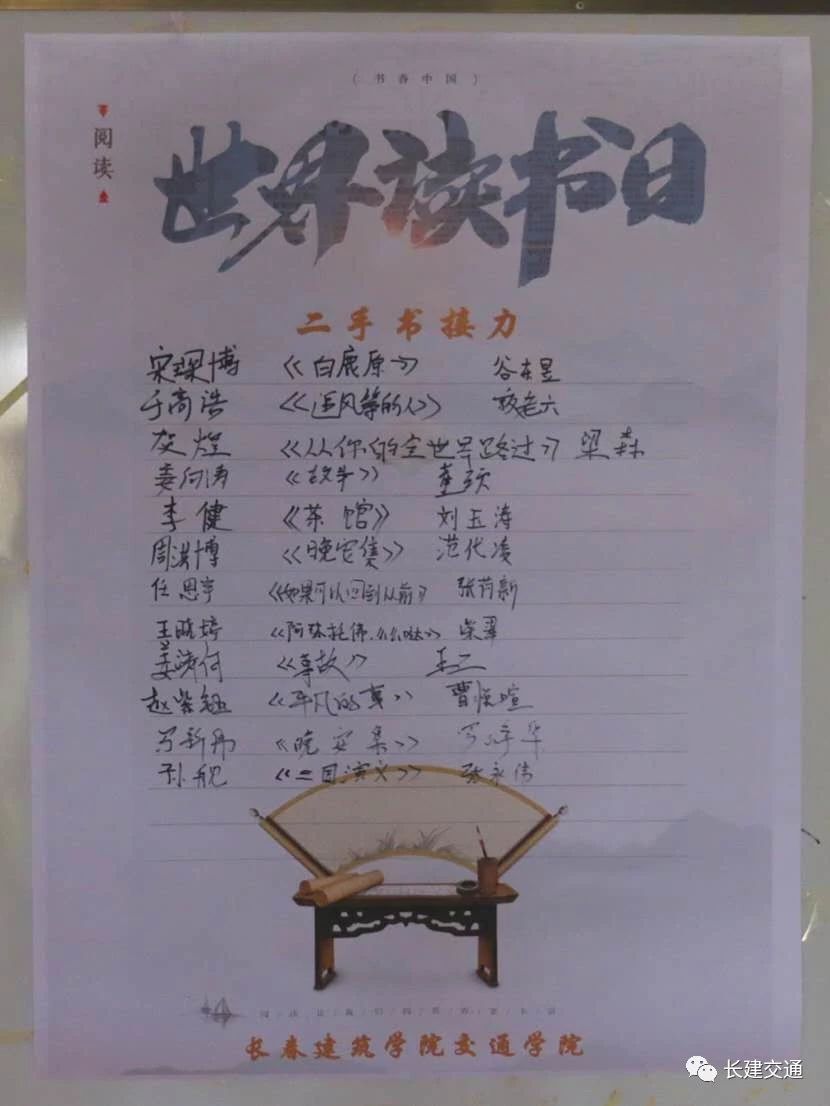 （书香中国）
阅读
世界读书日
二手书接力
宋琛博 《白鹿原》 谷东昱
于尚浩 《追风筝的人》
《从你的全世界路过》 梁森
姜向涛 《故乡》 董硕
李健 《茶馆》 刘玉涛
周洪博 《晚安集》 范代凌
任思宇 《如果可以回到从前》 张药新
王晓婷 《阿弥托佛么么哒》 柴翠
《事故》 王二
赵紫钰 《平凡的 》
《晚安集》
孙舰 《三国演义》 张永伟
长春建筑学院交通学院
长建交通